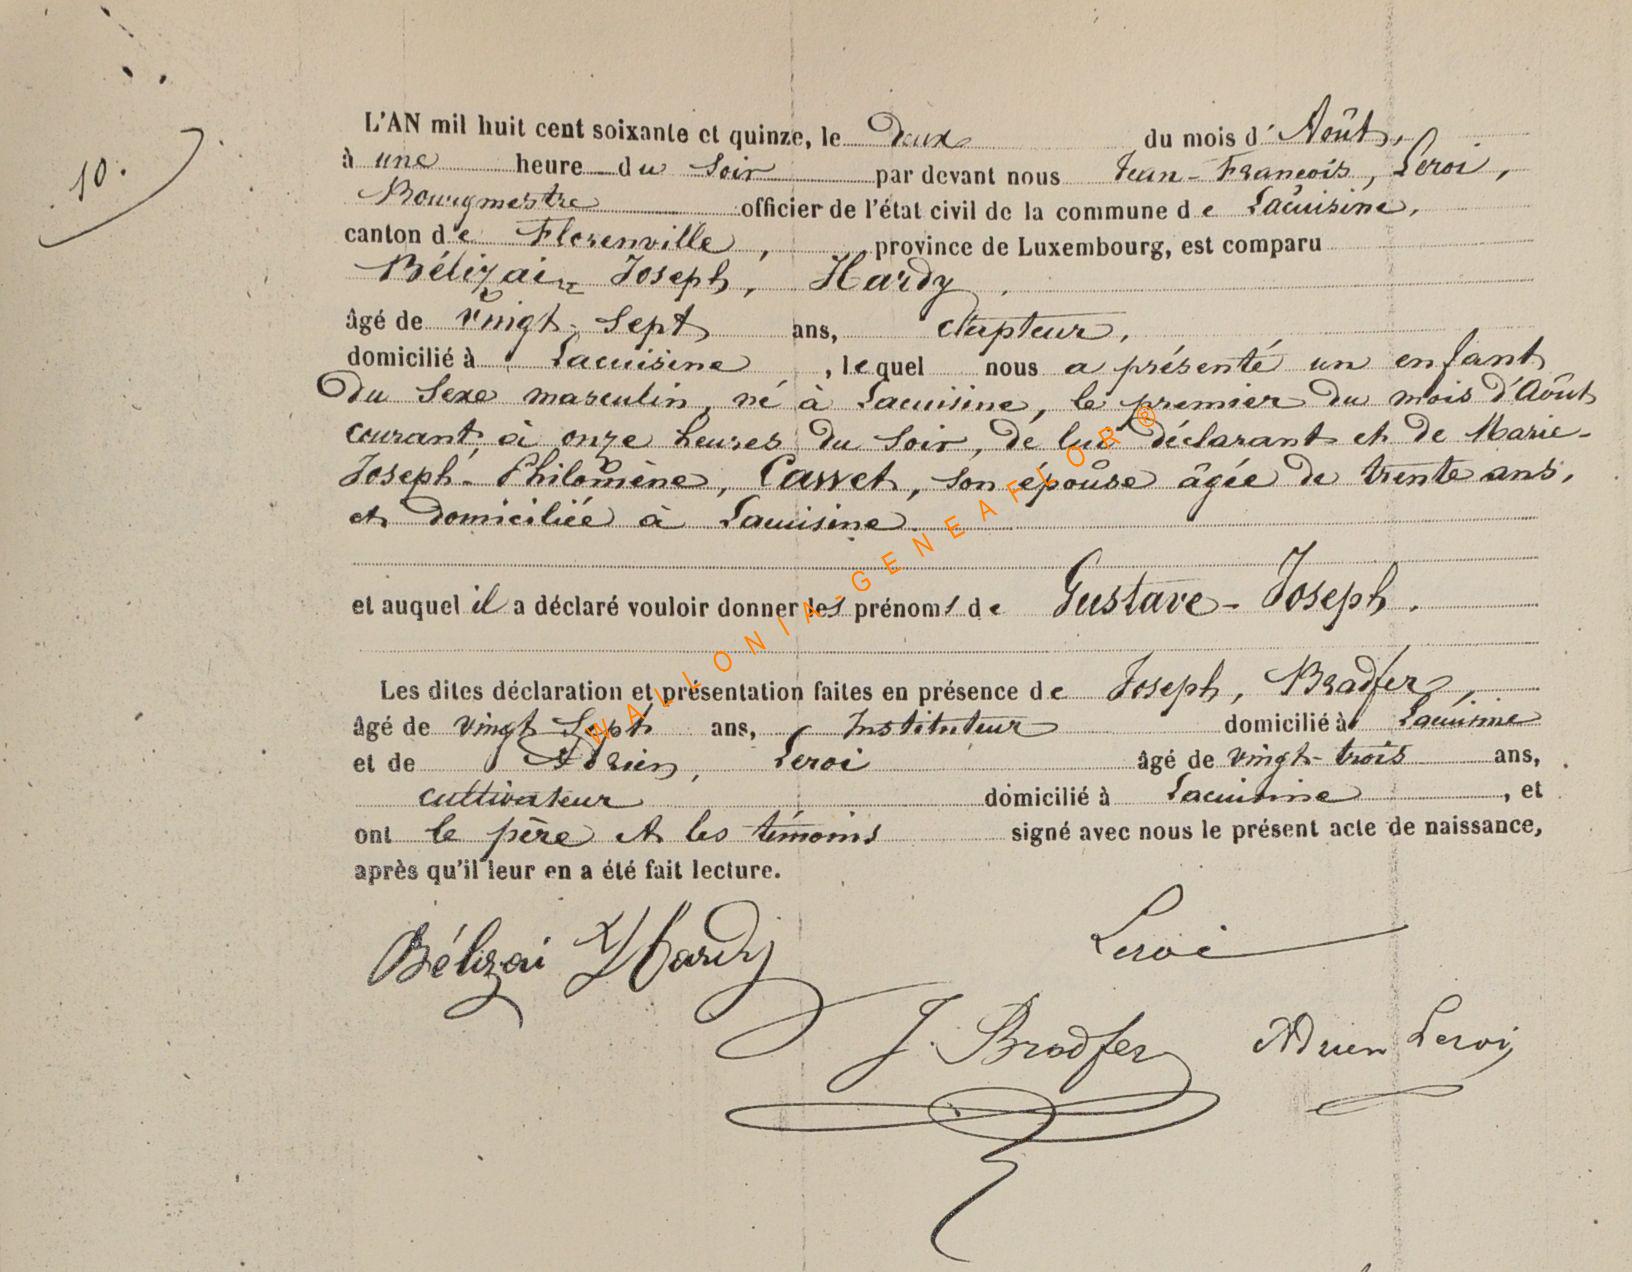 10.
L'AN mil huit cent soixante et quinze, le Deux du mois d' Août,
à une heure du Soir par devant nous Jean-François, Leroi,
Bourgmestre officier de l'état civil de la commune de Lacuisine,
canton de Florenville, province de Luxembourg, est comparu
Bélizair Joseph, Hardy,
âgé de vingt-Sept ans,
domicilié à Lacuisine, lequel nous a présenté un enfant
Du Sexe masculin, né à Lacuisine, le premier Du mois d'Août
courant, à onze heures Du Soir, de lui déclarant et de Marie-
Joseph-Philomène, Casset, Son épouse âgée de trente ans,
et domiciliée à Lacuisine.
et auquel il a déclaré vouloir donner les prénoms de Gustave-Joseph.
Les dites déclaration et présentation faites en présence de Joseph, Bradfer,
âgé de vingt-Sept ans, Instituteur domicilié à Lacuisine
et de Adrien, Leroi âgé de vingt-trois ans,
cultivateur domicilié à Lacuisine, et
ont le père et les témoins signé avec nous le présent acte de naissance,
après qu'il leur en a été fait lecture.
Bélizai Hardy Leroi
J. Bradfer Adrien Leroi
WALLONIA-GENEAFLOR®